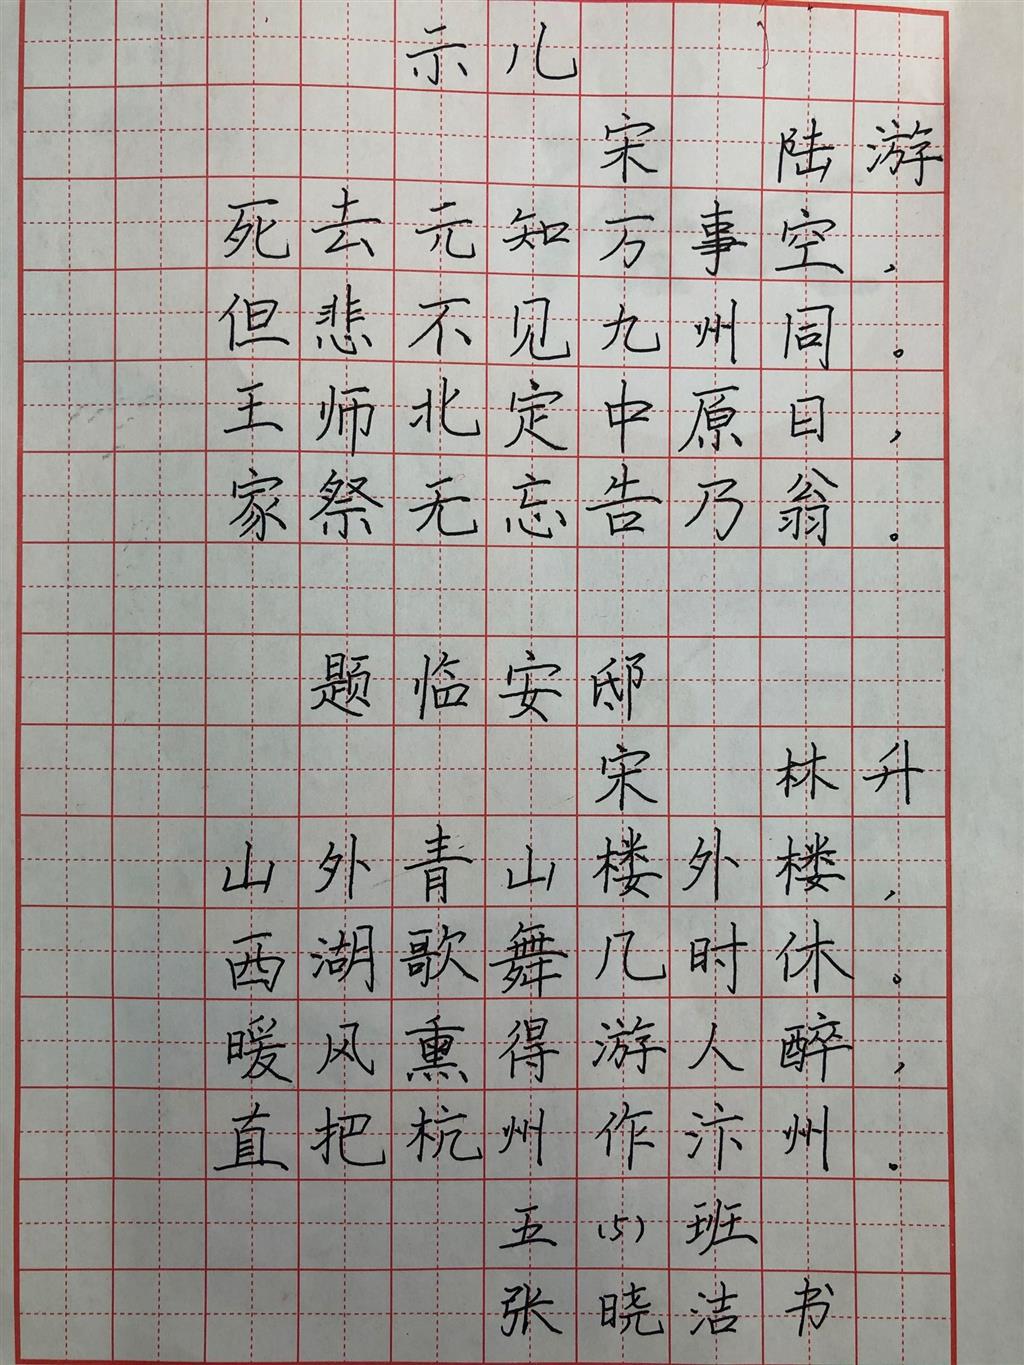 示儿
宋 陆游
死去元知万事空，
但悲不见九州同。
王师北定中原日，
家祭无忘告乃翁。
题临安邸
宋 林升
山外青山楼外楼，
西湖歌舞几时休。
暖风熏得游人醉，
直把杭州作汴州。
五（5）班
张晓洁书